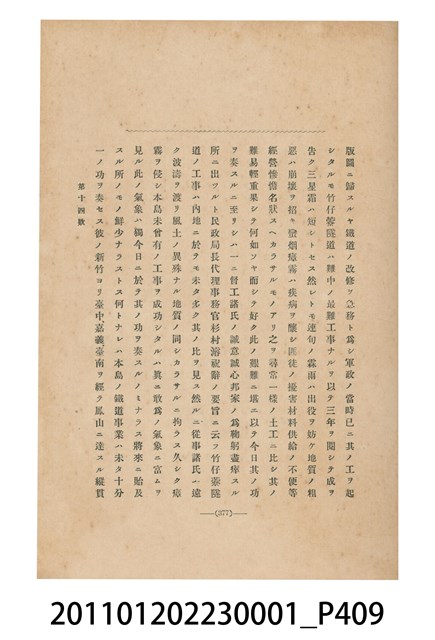 版圖ニ歸スルヤ鐵道ノ改修ヲ急務ト爲シ軍政ノ當時已ニ其ノ工ヲ起
シタルモ竹仔藔隧道ハ難中ノ最難工事ナルヲ以テ三年ヲ閲シテ成ヲ
告ク三星霜ハ短シトセス然レトモ連旬ノ霖雨ハ出役ヲ妨ケ地質ノ粗
惡ハ崩壞ヲ招キ蠻烟瘴霧ハ疾病ヲ釀シ匪徒ノ擾害材料供給ノ不便等
經營慘憺名狀スヘカラサルモノアリ之ヲ尋常一樣ノ土工ニ比シ其ノ
難易輕重果シテ何如ソヤ而シテ好ク此ノ艱難ニ堪ニ以テ今日其ノ功
ヲ奏スルニ至リシハ一ニ督工諸氏ノ誠意誠心邦家ノ爲鞠躬盡瘁スル
所ニ出ツルト民政局長代理事務官杉村濬祝辭ノ要旨ニ云フ竹仔藔隧
道ノ工事ハ內地ニ於テモ未タ多ク其ノ比ヲ見ス然ルニ從事諸氏ハ遠
ク波濤ヲ渡リ風土ノ異殊ナル地質ノ同シカラサルニ拘ラス久シク瘴
霧ヲ侵シ本島未曾有ノ工事ヲ成功シタルハ眞ニ敢爲ノ氣象ニ富ムヲ
見ル此ノ氣象ハ獨今日ニ於テ其ノ功ヲ奏スルノミナラス將來ニ貽及
スル所ノモノ鮮少ナラストス何トナレハ本島ノ鐵道事業ハ未タ十分
一ノ功ヲ奏セス彼ノ新竹ヨリ臺中、嘉義臺南ヲ經テ鳳山ニ達スル縱貫
第十四號
(377)
201101202230001_P409